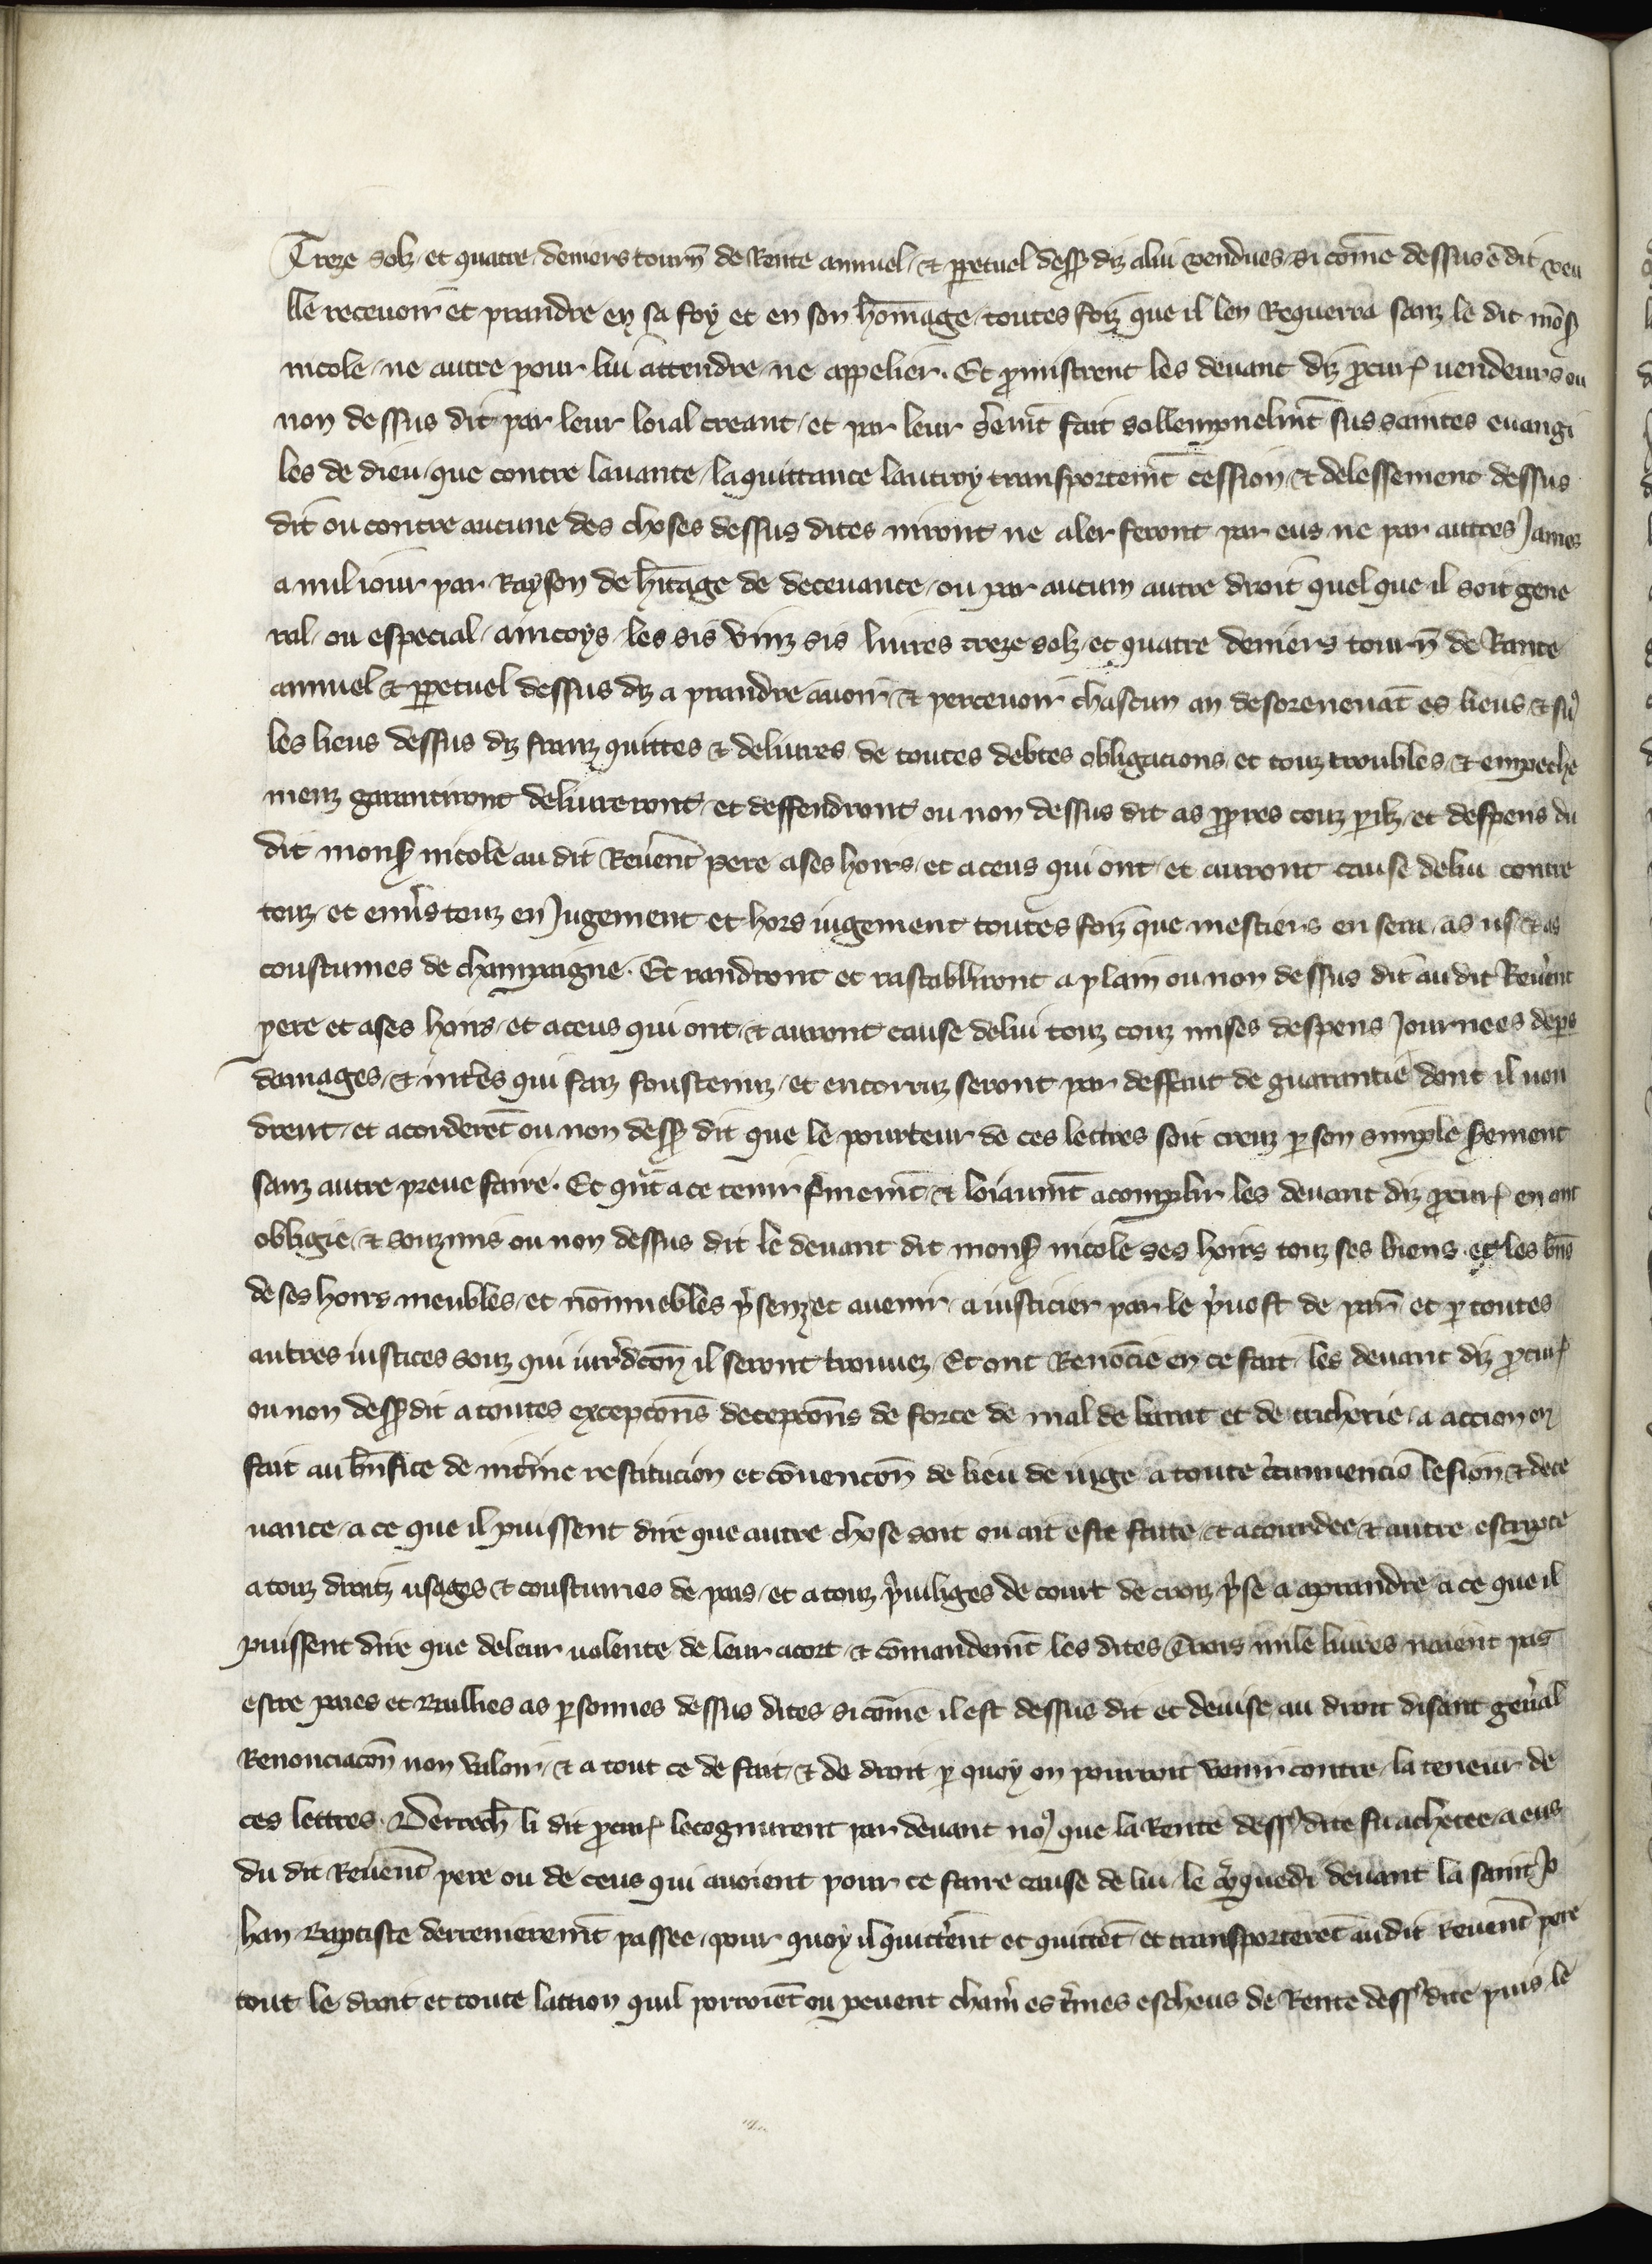 Treze solz et quatre deniers tourñ de Rente annuel & ꝑpetuel dessꝰ diz a lui vendues si cōme dessus ē dit veu
lle recevoir et prandre en sa foy et en son hōmage toutes foiz que il len Requerra sanz le dit mōsʳ
nicole ne autre pour lui attendre ne appelier. Et ꝓmistrent les devant diz ꝓcurʳ vendeurs ou
non dessus dit par leur loial creant et par leur s̄emt̄ fait sollempnelmt̄ sus saintes euangi
les de dieu que contre la vante la quittance lautroy transportemt̄ cession & delessement dessus
dit ou contre aucune des choses dessus dites niront ne aler feront par eus ne par autres James
a nul iour par Rayson de hītage de decevance ou par aucun autre droit quel que il soit gene
ral ou especial aincoys les sis vinz sis livres treze solz et quatre deniers tourñ de Rante
annuel & ꝑpetuel dessus diz a prandre avoir & percevoir chascun an desorenevāt es lieus & suʳ
les lieus dessus diz franz quittes & delivres de toutes debtes obligacions et touz troubles & empeche
menz garantiront deliureront et deffendront ou non dessus dit as ꝓpres couz ꝑilz et despens du
dit monsʳ nicole au dit Rev̄ent pere a ses hoirs et a ceus qui ont et auront cause de lui contre
touz et env̄s touz en Jugement et hors iugement toutes foiz que mestiers en sera as us & as
coustumes de champaigne. Et randront et rastabliront a plain ou non dessus dit au dit Rev̄ent
pere et a ses hoirs et a ceus qui ont & auront cause de lui touz couz mises despens Journees deꝑs
damages & int̄es qui faiz soustenuz et encorruz seront par deffaut de guarantie dont il vou
drent et acorderēt ou non dessꝰ dit que le pourteur de ces lettres soit creuz ꝑ son simple s̄ement
sanz autre preue faire. Et qnt̄ a ce tenir f̄memt̄ & loiaumt̄ acomplir les devant diz ꝓcurʳ en ont
obligie & souzmis ou non dessus dit le devant dit monsʳ nicole ses hoirs touz ses biens et les bn̄s
de ses hoirs meubles et nōmuebles p̄senz et avenir a iusticier par le p̄vost de par̄ et ꝑ toutes
autres iustices souz qui iur̄dcōn il seront trouuez Et ont Renōcie en ce fait les devant diz ꝓcurʳ
ou non dessꝰ dit a toutes excepcōns decepcōns de force de mal de barat et de tricherie a accion en
fait au bn̄fice de int̄ine restitucion et cōvencōn de lieu de iuge a toute c̄cunvencio lesion & dece
vance a ce que il puissent dire que autre chose soit ou ait este faite & acourdee & autre escripte
a touz droitz usages & coustumes de pais et a touz p̄viliges de court de croiz p̄se a aprandre a ce que il
puissent dire que de leur volente de leur acort & cōmandemt̄ les dites Trois mile livres naient pas
estre paies et Baillies as ꝑsonnes dessus dites si cōme il est dessus dit et devise au droit disant gen̄al
Renonciacōn non valoir & a tout ce de fait & de droit ꝑ quoy on pourroit venir contre la teneur de
ces lettres. Derrech̄ li dit ꝓcurʳ lecognurent par devant noꝰ que la Rente dessꝰ dite fu achetee a eus
du dit Rev̄ent pere ou de ceus qui avoient pour ce faire cause de lui le devant la saint Jo
han Baptiste derrenieremt̄ passee pour quoy il quitt̄ent et quittēt et transporterēt au dit Rev̄ent pere
tout le droit et toute laction quil portoiēt ou pevent es t̄mes escheus de Rente dessꝰ dite puis le